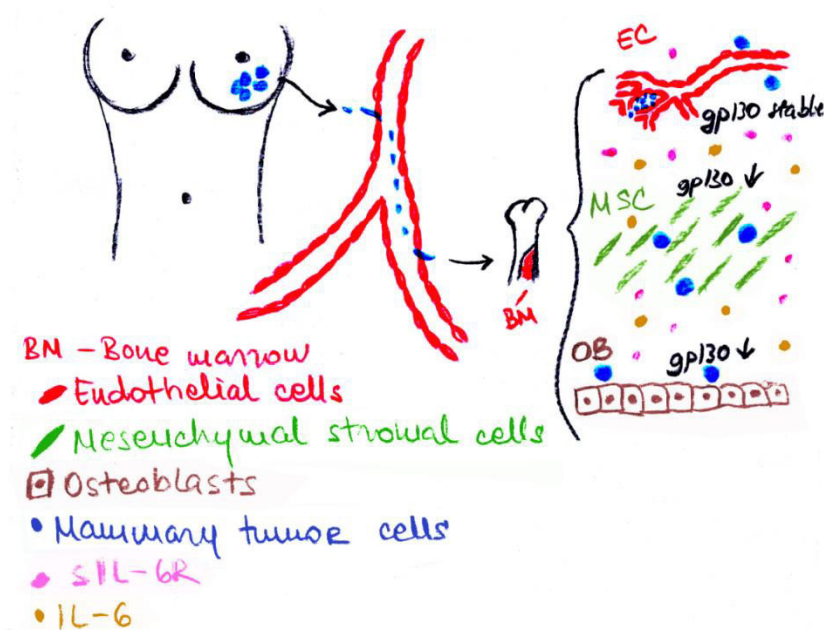 EC
gp130 stable
gp130 ↓
MSC
BM
OB
gp130 ↓
BM - Bone marrow
Endothelial cells
Mesenchymal stromal cells
Osteoblasts
Mammary tumor cells
sIL-6R
IL-6